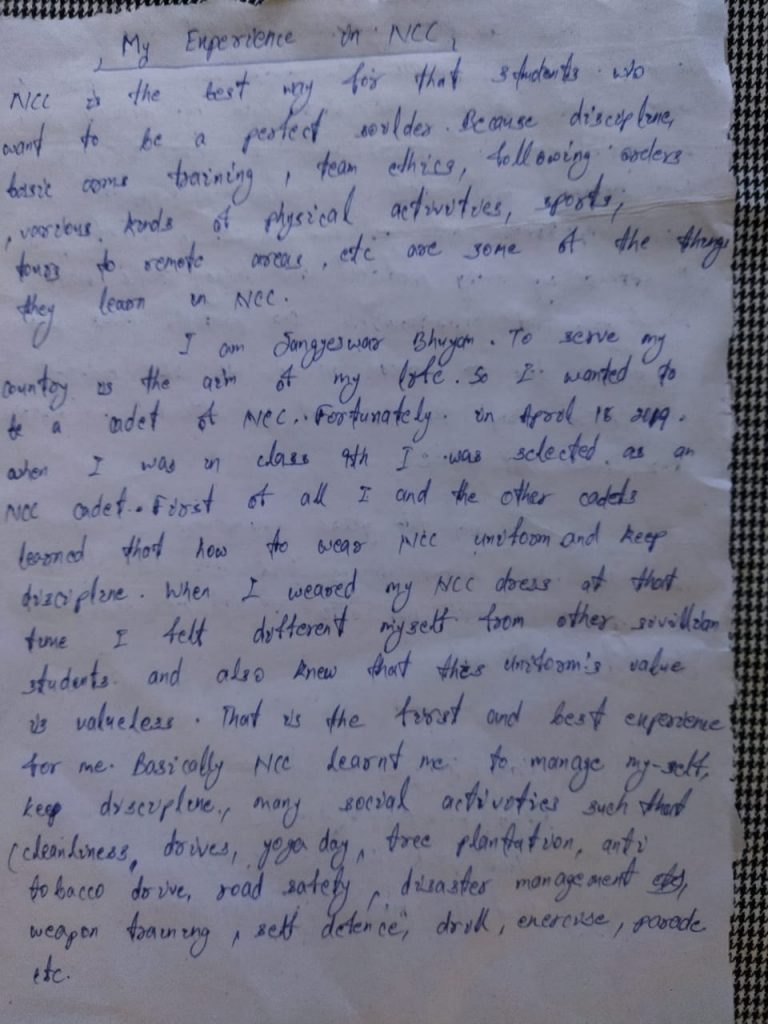 My Experience in NCC
NCC is the best way for that students who
want to be a perfect soulder. Because discipline,
basic arms training, team ethics, following orders
, various kinds of physical activities, sports,
tours to remote areas, etc are some of the things
they learn in NCC.
I am Bhuyan. To serve my
country is the aim of my life. So I wanted to
be a cadet of NCC. Fortunately. in April 18 2019.
when I was in class 9th I was selected as an
NCC cadet. First of all I and the other cadets
learned that how to wear NCC uniform and keep
discipline. When I weared my NCC dress at that
time I felt different myself from other sivillian
students and also knew that this uniform's value
is valueless. That is the first and best experience
for me. Basically NCC learnt me to manage my-self,
keep discipline, many social activities such that
(cleanliness, drives, yoga day, tree plantation, anti
tobacco drive, road safety, disaster management
weapon training, self defence, drill, exercise, parade
etc.